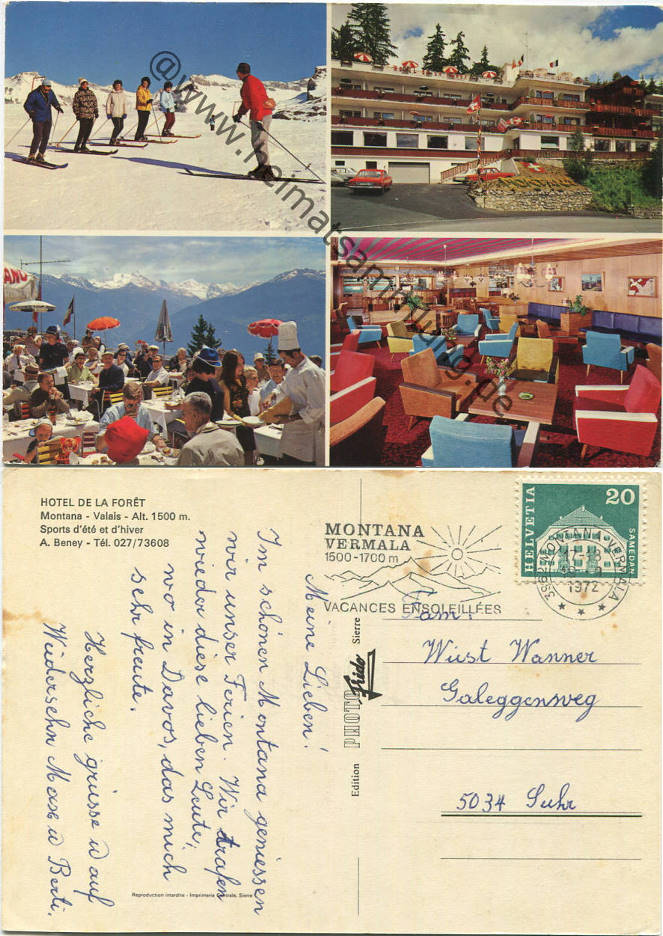 @www.heimatsammlung.de
HOTEL DE LA FORÊT
Montana - Valais - Alt. 1500 m.
Sports d'été et d'hiver
A. Beney - Tél. 027/73608
MONTANA
VERMALA
1500-1700 m
VACANCES ENSOLEILLÉES
HELVETIA
20
SAMEDAN
3962 MONTANA-VERMALA
1972
Meine Lieben!
Im schönen Montana geniessen
wir unser Ferien. Wir trafen
wieder diese lieben Leute,
wo in Davos, das mich
sehr freute.
Herzliche grüsse u auf
Wiedersehn Max u Berti.
Edition
PHOTO
Rido
Sierre
Fam:
Wüst Wanner
Galeggenweg
5034 Suhr
Reproduction interdite - Imprimerie Centrale, Sierre